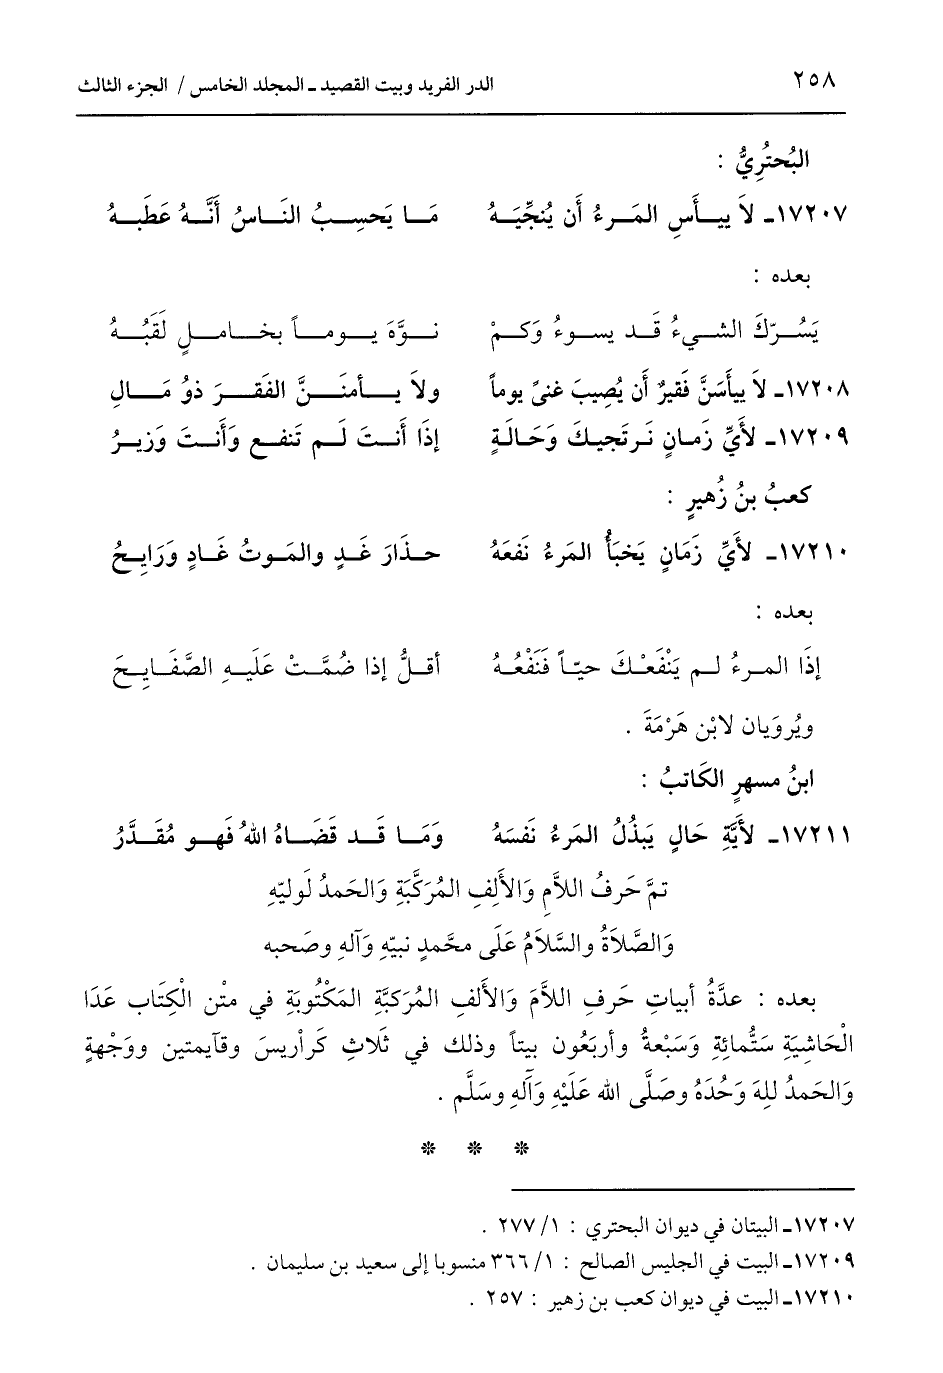 ٢٥٨ الدر الفريد وبيت القصيد ـ المجلد الخامس / الجزء الثالث
البُحتُرِيُّ :
١٧٢٠٧ـ لاَ ييـأَسِ المَـرءُ أَن يُنجِّيَـهُ مَـا يَحسِـبُ النَـاسُ أَنَّـهُ عَطَبـهُ
بعده :
يَسُـرّكَ الشـيءُ قَـد يسـوءُ وَكـمْ نـوَّهَ يـومـاً بخـامـلٍ لَقَبُـهُ
١٧٢٠٨ـ لاَ ييأَسَنَّ فَقيرٌ أَن يُصِيبَ غنىً يوماً ولاَ يـأمنَـنَّ الفَقـرَ ذوُ مَـالِ
١٧٢٠٩ـ لأَيِّ زَمـانٍ نَرتَجيـكَ وَحَـالَةٍ إذَا أَنـتَ لَـم تَنفـع وَأَنـتَ وَزيـرُ
كعبُ بنُ زُهيرٍ :
١٧٢١٠ـ لأَيِّ زَمَانٍ يَخبَأُ المَرءُ نَفعَهُ حـذَارَ غَـدٍ والمَـوتُ غَـادٍ وَرَايِـحُ
بعده :
إذَا المـرءُ لـم يَنْفَعْـكَ حيّـاً فَنَفْعُـهُ أقـلُّ إذا ضُمَّـتْ عَلَيـهِ الصَّفَـايِـحَ
ويُروَيان لابْن هَرْمَةَ .
ابنُ مسهرٍ الكَاتبُ :
١٧٢١١ـ لأَيَّةِ حَالٍ يَبذُلُ المَرءُ نَفسَهُ وَمَـا قَـد قَضَـاهُ اللهُ فَهـو مُقَـدَّرُ
تمَّ حَرفُ اللاَّمِ وَالأَلِفِ المُرَكَّبَةِ وَالحَمدُ لَوليّهِ
وَالصَّلاَةُ والسَّلاَمُ عَلَى محمَّدٍ نبيّهِ وَآلهِ وصَحبه
بعده : عدَّةُ أبياتِ حَرفِ اللاَّمَ وَالأَلفِ المُرَكبَّةِ المَكْتُوبَةِ في متْن الْكِتَاب عَدَا
الْحَاشِيَةِ ستُّمائِةِ وَسَبْعةُ وأربَعُون بيتاً وذلك في ثَلاثِ كَرأريسَ وقآيمتين ووَجْهةٍ
وَالحَمدُ للهِ وَحُدَهُ وصَلَّى الله عَلَيْهِ وَآلهِ وسَلَّم .
* * *
١٧٢٠٧ـ البيتان في ديوان البحتري : ١/ ٢٧٧ .
١٧٢٠٩ـ البيت في الجليس الصالح : ١/ ٣٦٦ منسوبا إلى سعيد بن سليمان .
١٧٢١٠ـ البيت في ديوان كعب بن زهير : ٢٥٧ .